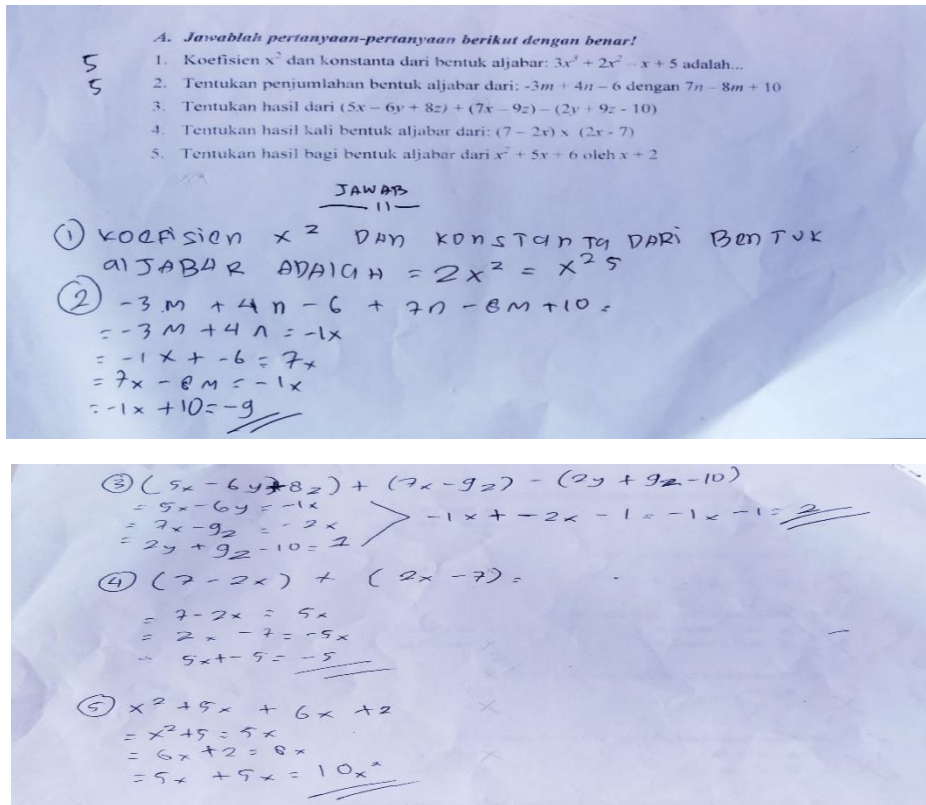 A. Jawablah pertanyaan-pertanyaan berikut dengan benar!
5 1. Koefisien x² dan konstanta dari bentuk aljabar: 3x³ + 2x² – x + 5 adalah...
5 2. Tentukan penjumlahan bentuk aljabar dari: -3m + 4n – 6 dengan 7n – 8m + 10
3. Tentukan hasil dari (5x – 6y + 8z) + (7x – 9z) – (2y + 9z - 10)
4. Tentukan hasil kali bentuk aljabar dari: (7 – 2x) x (2x - 7)
5. Tentukan hasil bagi bentuk aljabar dari x² + 5x + 6 oleh x + 2
JAWAB
① KOEFISIEN x² DAN KONSTANTA DARI BENTUK
ALJABAR ADALAH = 2x² = x² 5
② -3M + 4n - 6 + 7n - 8M + 10 =
= -3M + 4n = -1x
= -1x + -6 = 7x
= 7x - 8M = -1x
= -1x + 10 = -9
③ (5x - 6y + 8z) + (7x - 9z) - (2y + 9z - 10)
= 5x - 6y = -1x
= 7x - 9z = -2x -1x + -2x - 1 = -1x - 1 = 2
= 2y + 9z - 10 = 1
④ (7 - 2x) + (2x - 7) =
= 7 - 2x = 5x
= 2x - 7 = -5x
5x + - 5 = -5
⑤ x² + 5x + 6x + 2
= x² + 5 = 5x
= 6x + 2 = 8x
= 5x + 5x = 10x²